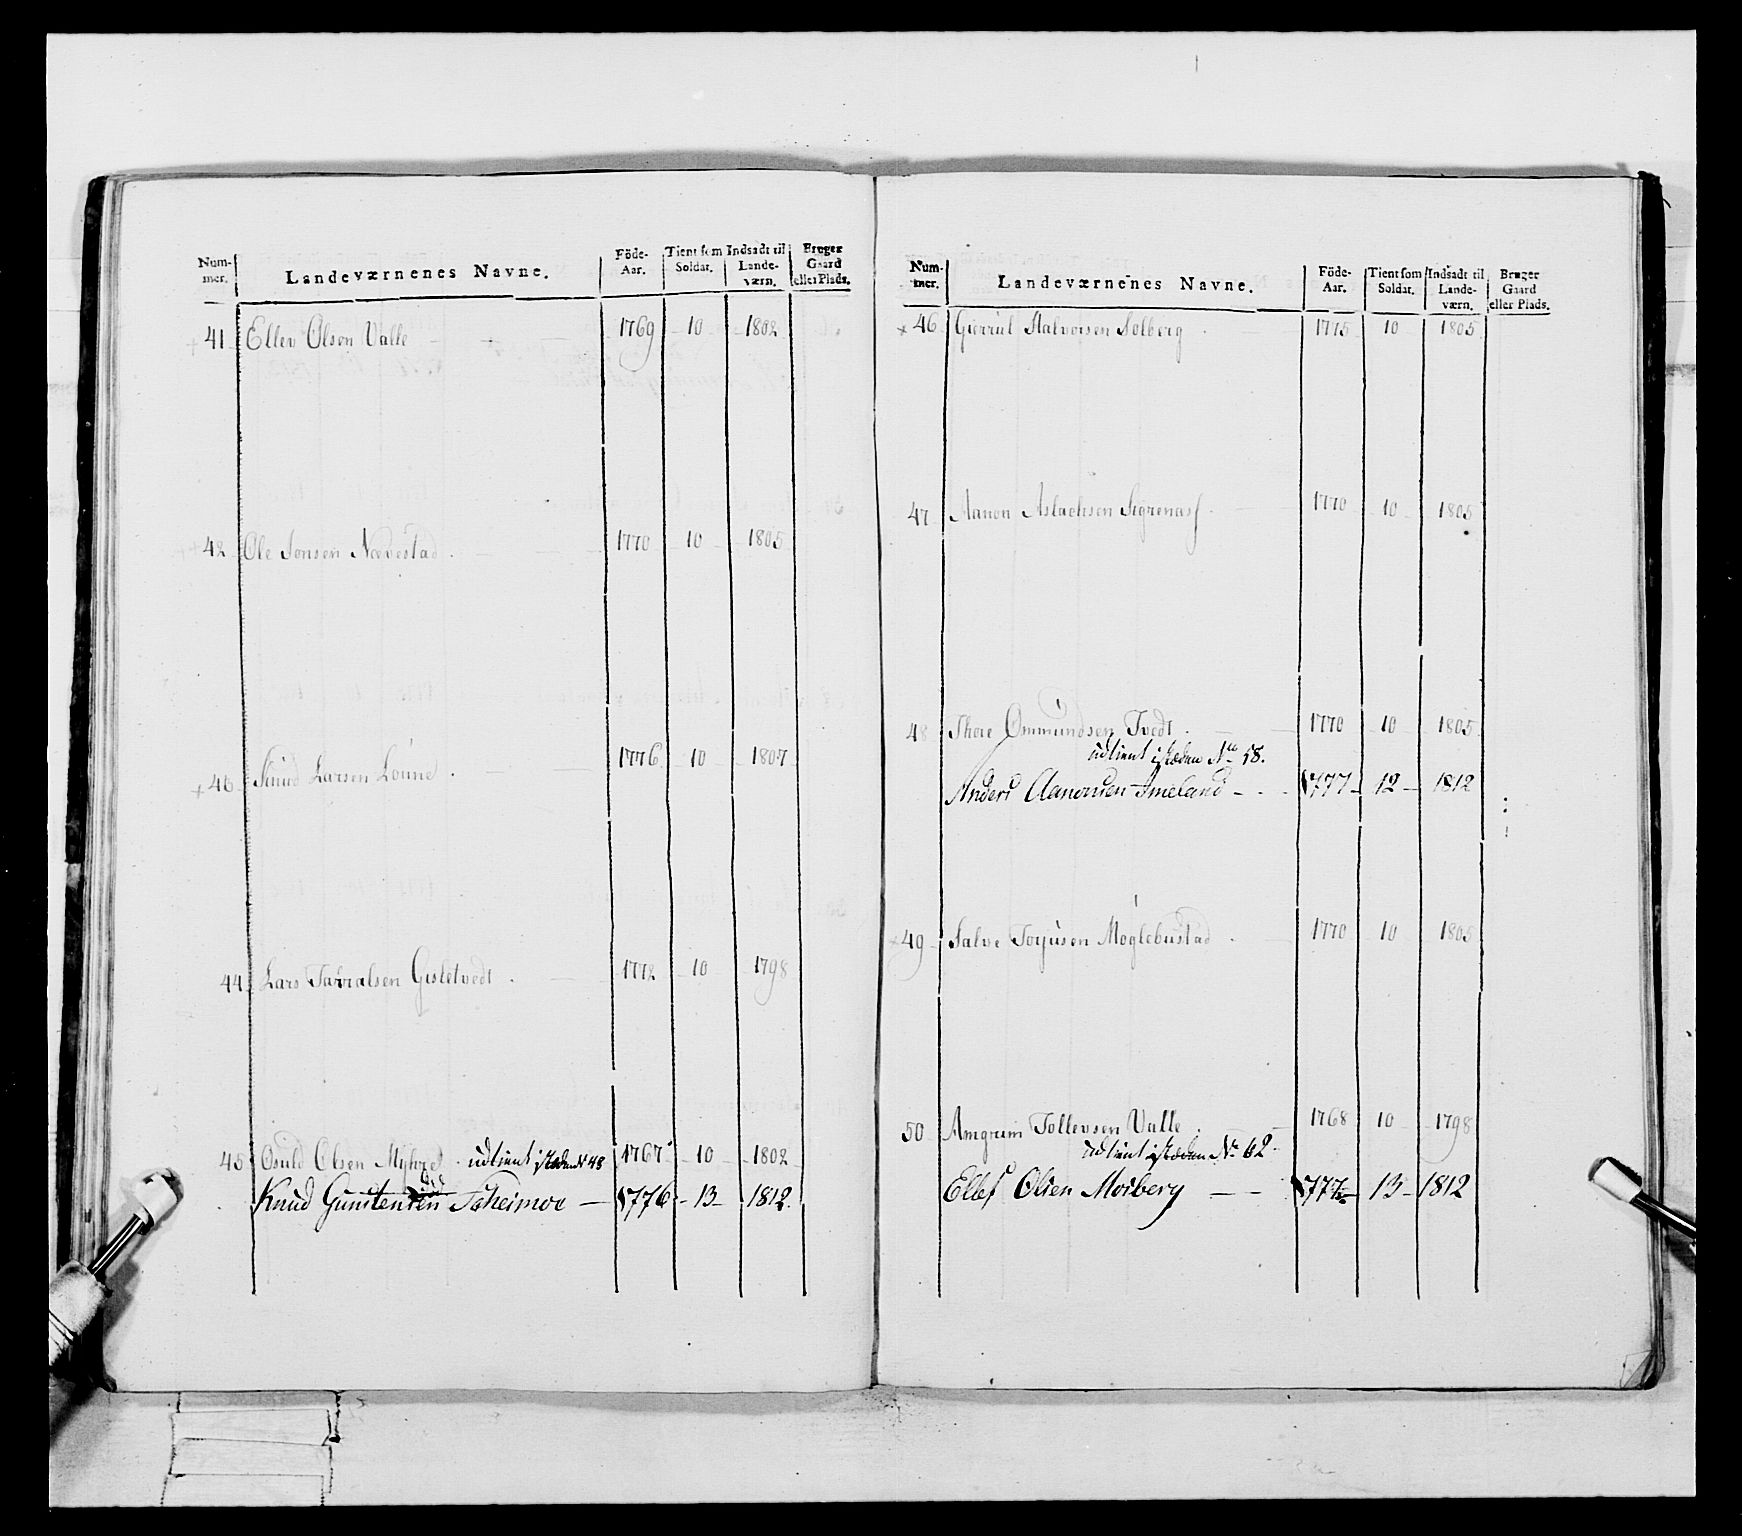 Num-mer. Landeværnenes Navne. Föde-Aar. Tient som Soldat. Indsadt til Lande-værn. Bruger Gaard eller Plads.
41 Ellev Olsen Valle 1769 10 1802
42 Ole Jonsen Nædestad 1770 10 1805
+46 Knud Larsen Lonne 1776 10 1807
44 Lars Tarralsen Gisletvedt 1772 10 1798
45 Osuld Olsen Myhre udtient isteden No 48 1767 10 1802
Knud Gunstensen 1776 13 1812
Num-mer. Landeværnenes Navne. Föde-Aar. Tient som Soldat. Indsadt til Lande-værn. Bruger Gaard eller Plads.
+46 Gierrul Halvorsen Solberg 1775 10 1805
47 Aanon Aslachsen 1770 10 1805
48 Thore Ommundsen Tvedt 1770 10 1805
udtient isteden No 58.
Anders Aanonsen Imeland 1777 12 1812
+49 Salve Torjusen Møglebustad 1770 10 1805
50 Amgrim Tollevsen Valle 1768 10 1798
udtient isteden No 62
Ellef Olsen Mosberg 13 1812